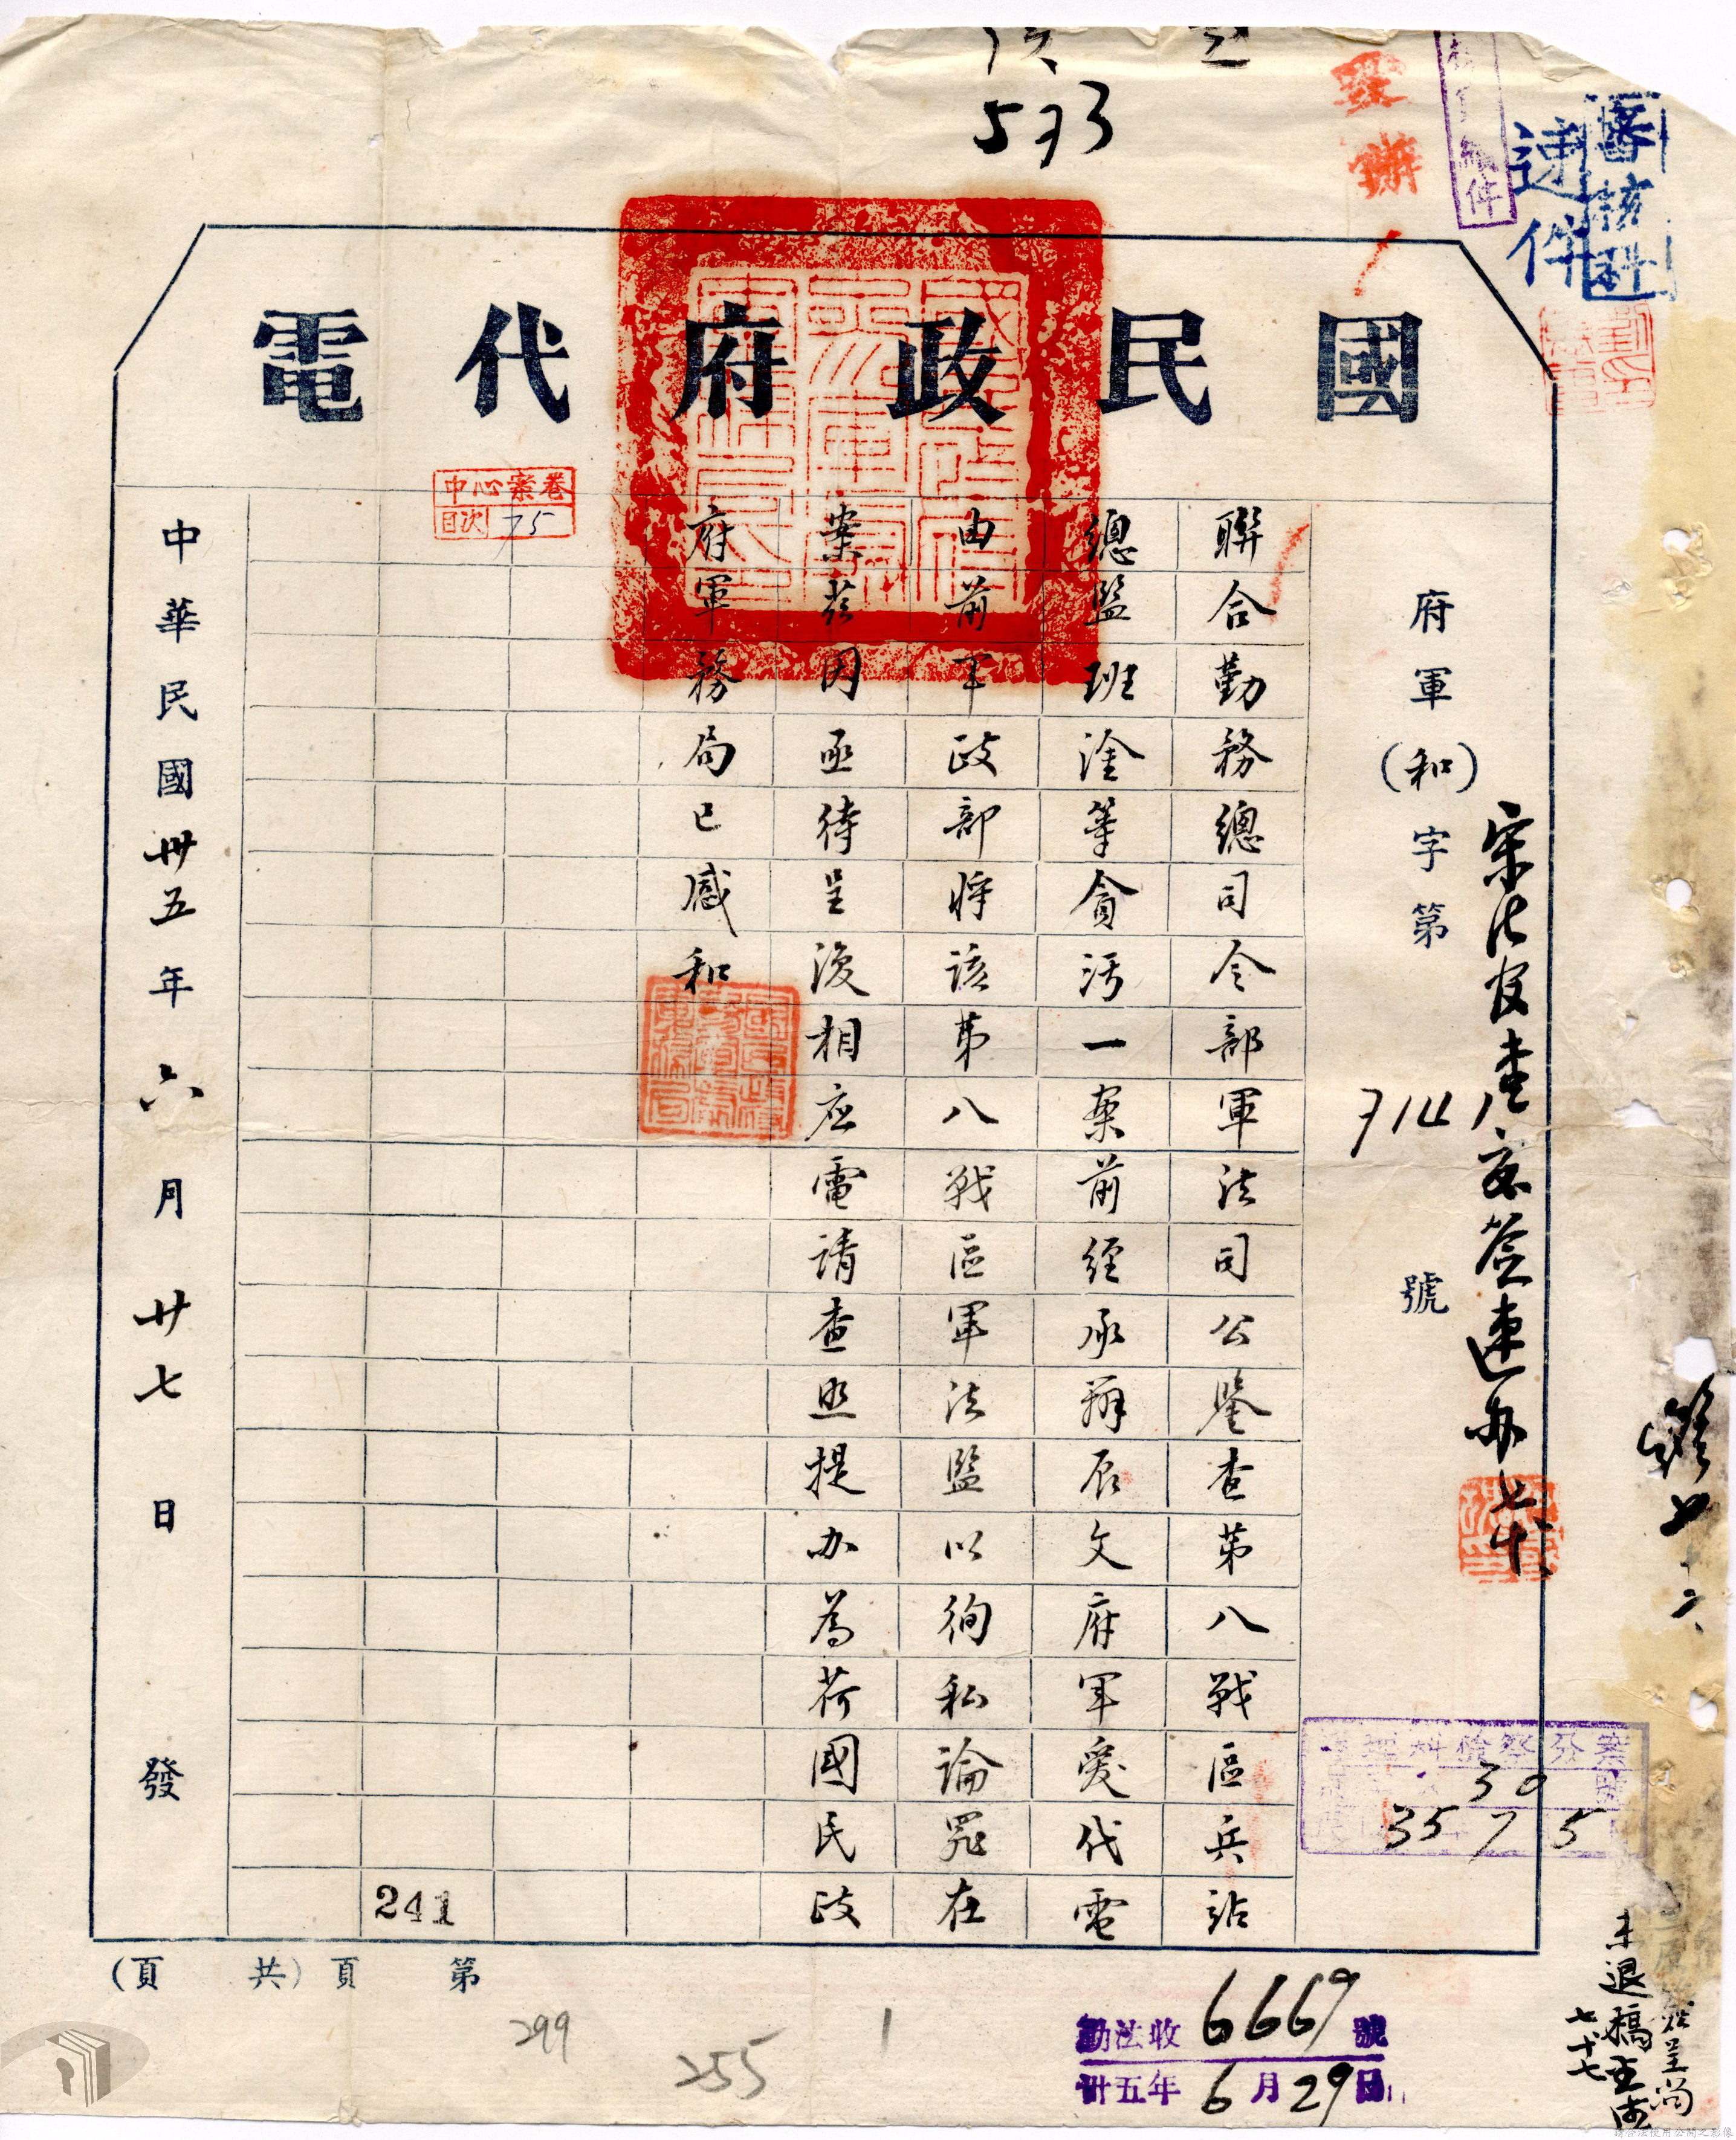 573
提辦
審核科
速件
國民政府代電
府軍(和)字第
7141
號
聯合勤務總司令部軍法司公鑒查第八戰區兵站
總監班淦等貪污一案前經承辦辰文府軍愛代電
由前軍政部將該第八戰區軍法監以徇私論罪在
案茲因亟待呈復相应電請查照提办為荷國民政
府軍務局已感和
中心案卷
目次 75
中華民國卅五年六月廿七日發
241
第 頁(共 頁)
30
35 7 5
未退稿
七十七
299
255
1
勤法收6669號
卅五年6月29日